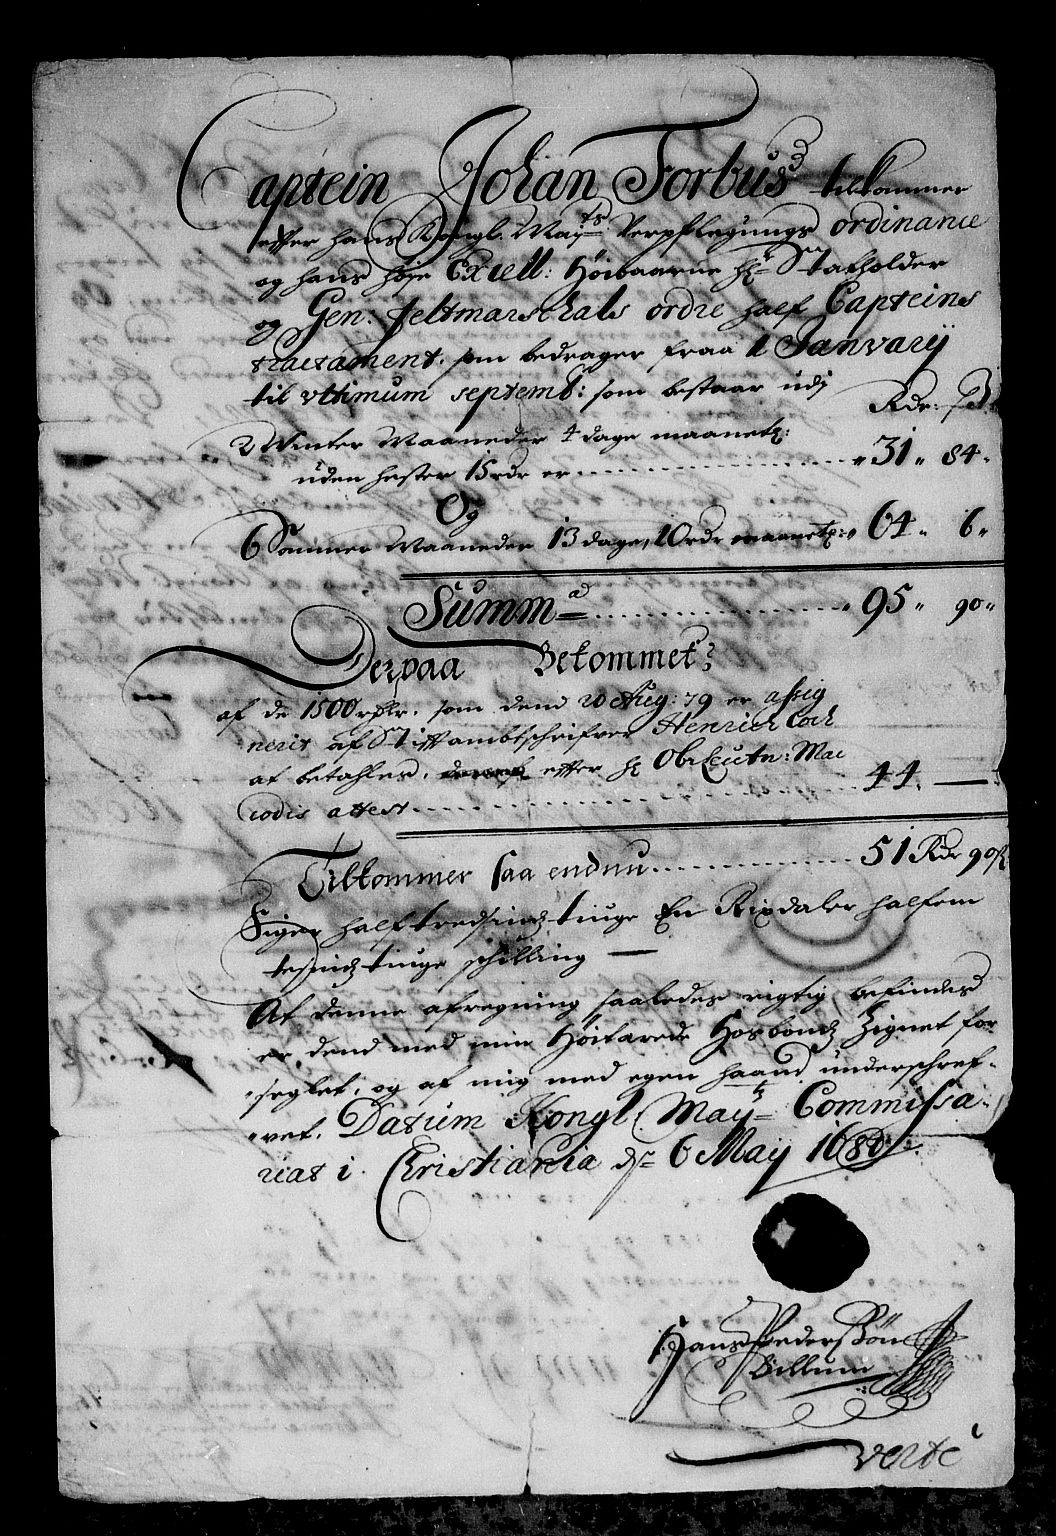 Captein Johan Forbus tilkommer
effter hans Kongl. May:ts Verpflegungs ordinance
og hans höje Excell: Höibaarne Hr Statholder
og Gen: feltmarschals ordre half Capteins
tractament. som bedrager fraa 1 Janvarij
til vltimum septemb: som bestaar udj
Rdr: ß
2 Winter Maaneder 4 dage maanetl:
uden hester 15 rdr er 31 84
Og
6 Sommer Maaneder 13 dage, 10 rdr maanetl: 64 6
Summa 95 90
Derpaa Bekommet
af de 1500 rdlr. som dend 20 Aug: 79 er assig
nerit af Stiftambtschrifver Henrich Cock
at betahles, effter Hr Obr Leutn: Mac
codis attest 44 —
Tilkommer saa endnu 51 Rdr 90 ß
Siger halftredsindstiuge En Rixdaler halfem
tesindstiuge schilling —
At denne afregning saaledes rigtig befindes
er dend med min Höitærede Hosbonds Zignet for
seglet, og af mig med egen haand underschref-
vet. Datum Kongl. May:ts Commissa-
riat i Christiania ds 6 May 1680.
Hans Pedersøn
Billum
verte